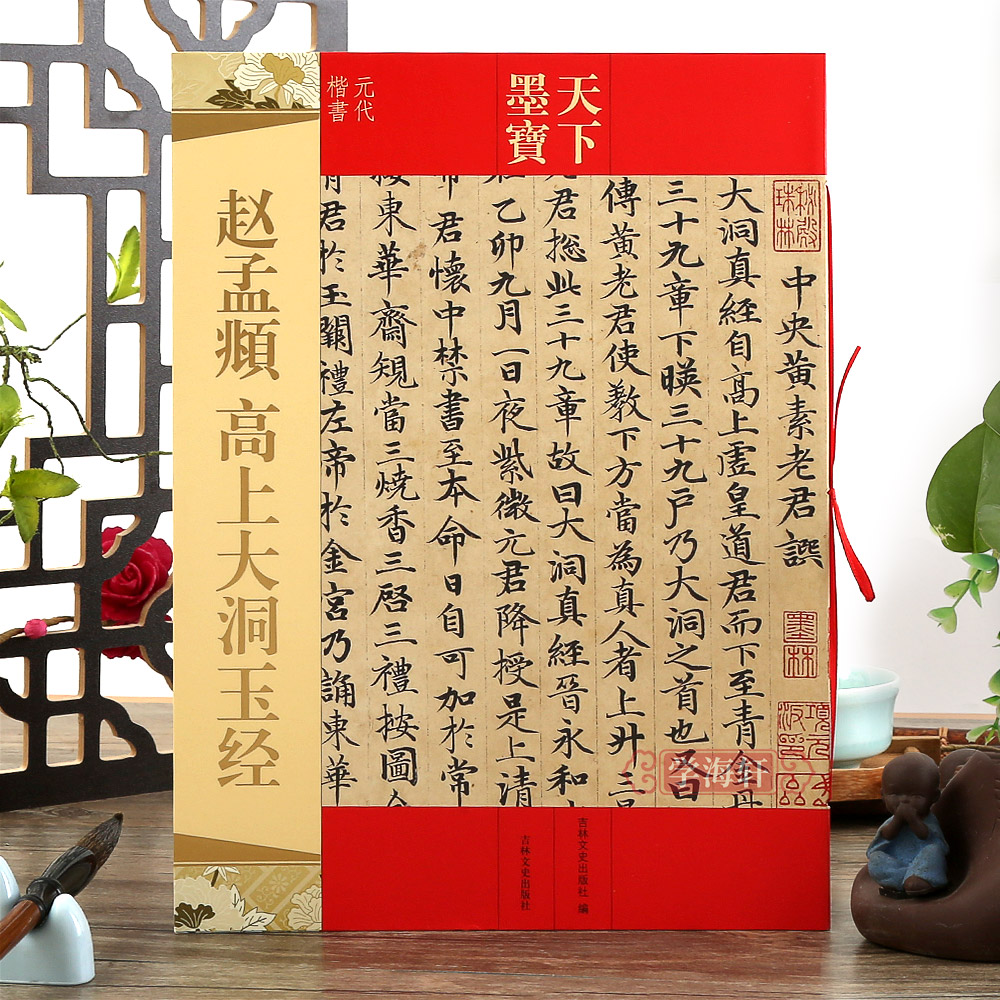 元代
楷書
天下
墨寶
赵孟頫 高上大洞玉经
中央黄素老君譔
大洞真經自高上虚皇道君而下至青金母
三十九章下暎三十九户乃大洞之首也吾曰
傳黄老君使教下方當為真人者上升三
君揔此三十九章故曰大洞真經晉永和
乙卯九月一日夜紫微元君降授是上清
君懷中禁書至本命日自可加於常
按東華齋䂓當三燒香三啓三禮按圖
君於玉闕禮左帝於金宮乃誦東華
墨林
学海軒
吉林文史出版社 编
吉林文史出版社